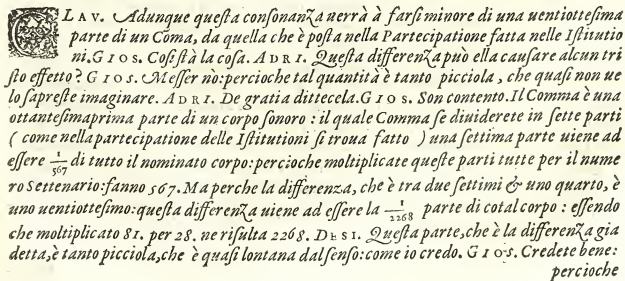 CLAV. Adunque queſta conſonanza uerrà à farſi minore di una uentiotteſima
parte di un Coma, da quella che è poſta nella Partecipatione fatta nelle Iſtitutio
ni. GIOS. Coſi ſtà la coſa. ADRI. Queſta differenza può ella cauſare alcun tri
ſto effetto? GIOS. Meſſer nò: percioche tal quantità è tanto picciola, che quaſi non ue
lo ſapreſte imaginare. ADRI. De gratia dittecela. GIOS. Son contento. Il Comma è una
ottanteſimaprima parte di un corpo ſonoro : il quale Comma ſe diuiderete in ſette parti
( come nella partecipatione delle Iſtitutioni ſi troua fatto ) una ſettima parte uiene ad
eſſere 1/567 di tutto il nominato corpo: percioche moltiplicate queſte parti tutte per il nume
ro Settenario: fanno 567. Ma perche la differenza, che è tra due ſettimi & uno quarto, è
uno uentiotteſimo: queſta differenza uiene ad eſſere la 1/2268 parte di cotal corpo : eſſendo
che moltiplicato 81. per 28. ne riſulta 2268. DESI. Queſta parte, che è la differenza gia
detta, è tanto picciola, che è quaſi lontana dal ſenſo: come io credo. GIOS. Credete bene:
percioche